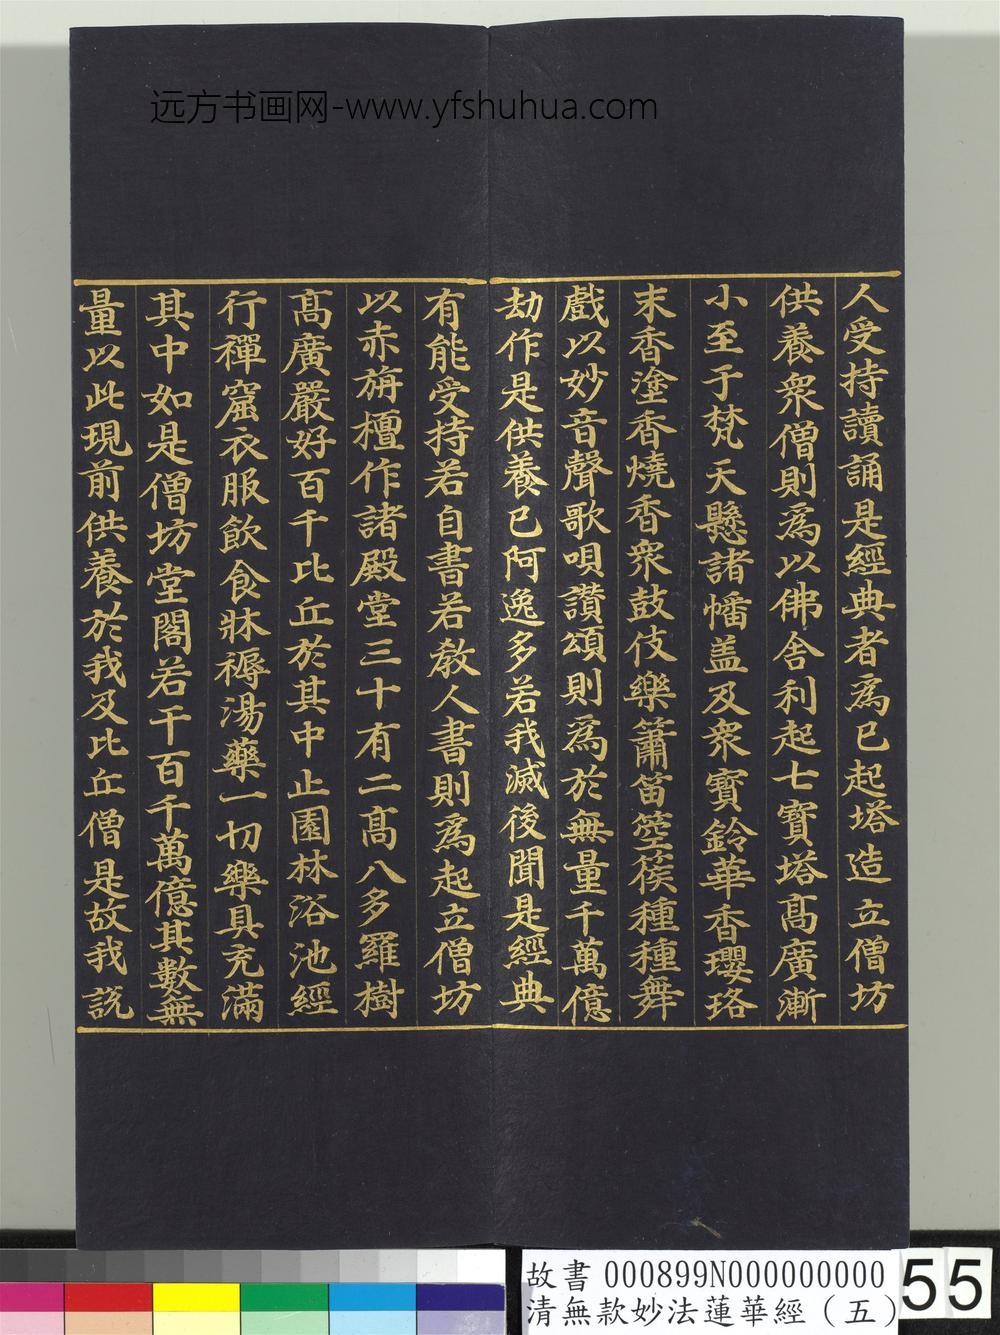 远方书画网-www.yfshuhua.com
人受持讀誦是經典者為已起塔造立僧坊
供養衆僧則為以佛舍利起七寶塔髙廣漸
小至于梵天懸諸幡盖及衆寶鈴華香瓔珞
末香塗香燒香衆鼓伎樂簫笛箜篌種種舞
戲以妙音聲歌唄讚頌則為於無量千萬億
劫作是供養已阿逸多若我滅後聞是經典
有能受持若自書若教人書則為起立僧坊
以赤旃檀作諸殿堂三十有二髙八多羅樹
髙廣嚴好百千比丘於其中止園林浴池經
行禪窟衣服飲食牀褥湯藥一切樂具充滿
其中如是僧坊堂閣若干百千萬億其數無
量以此現前供養於我及比丘僧是故我説
故書 000899N000000000
清無款妙法蓮華經（五）
55